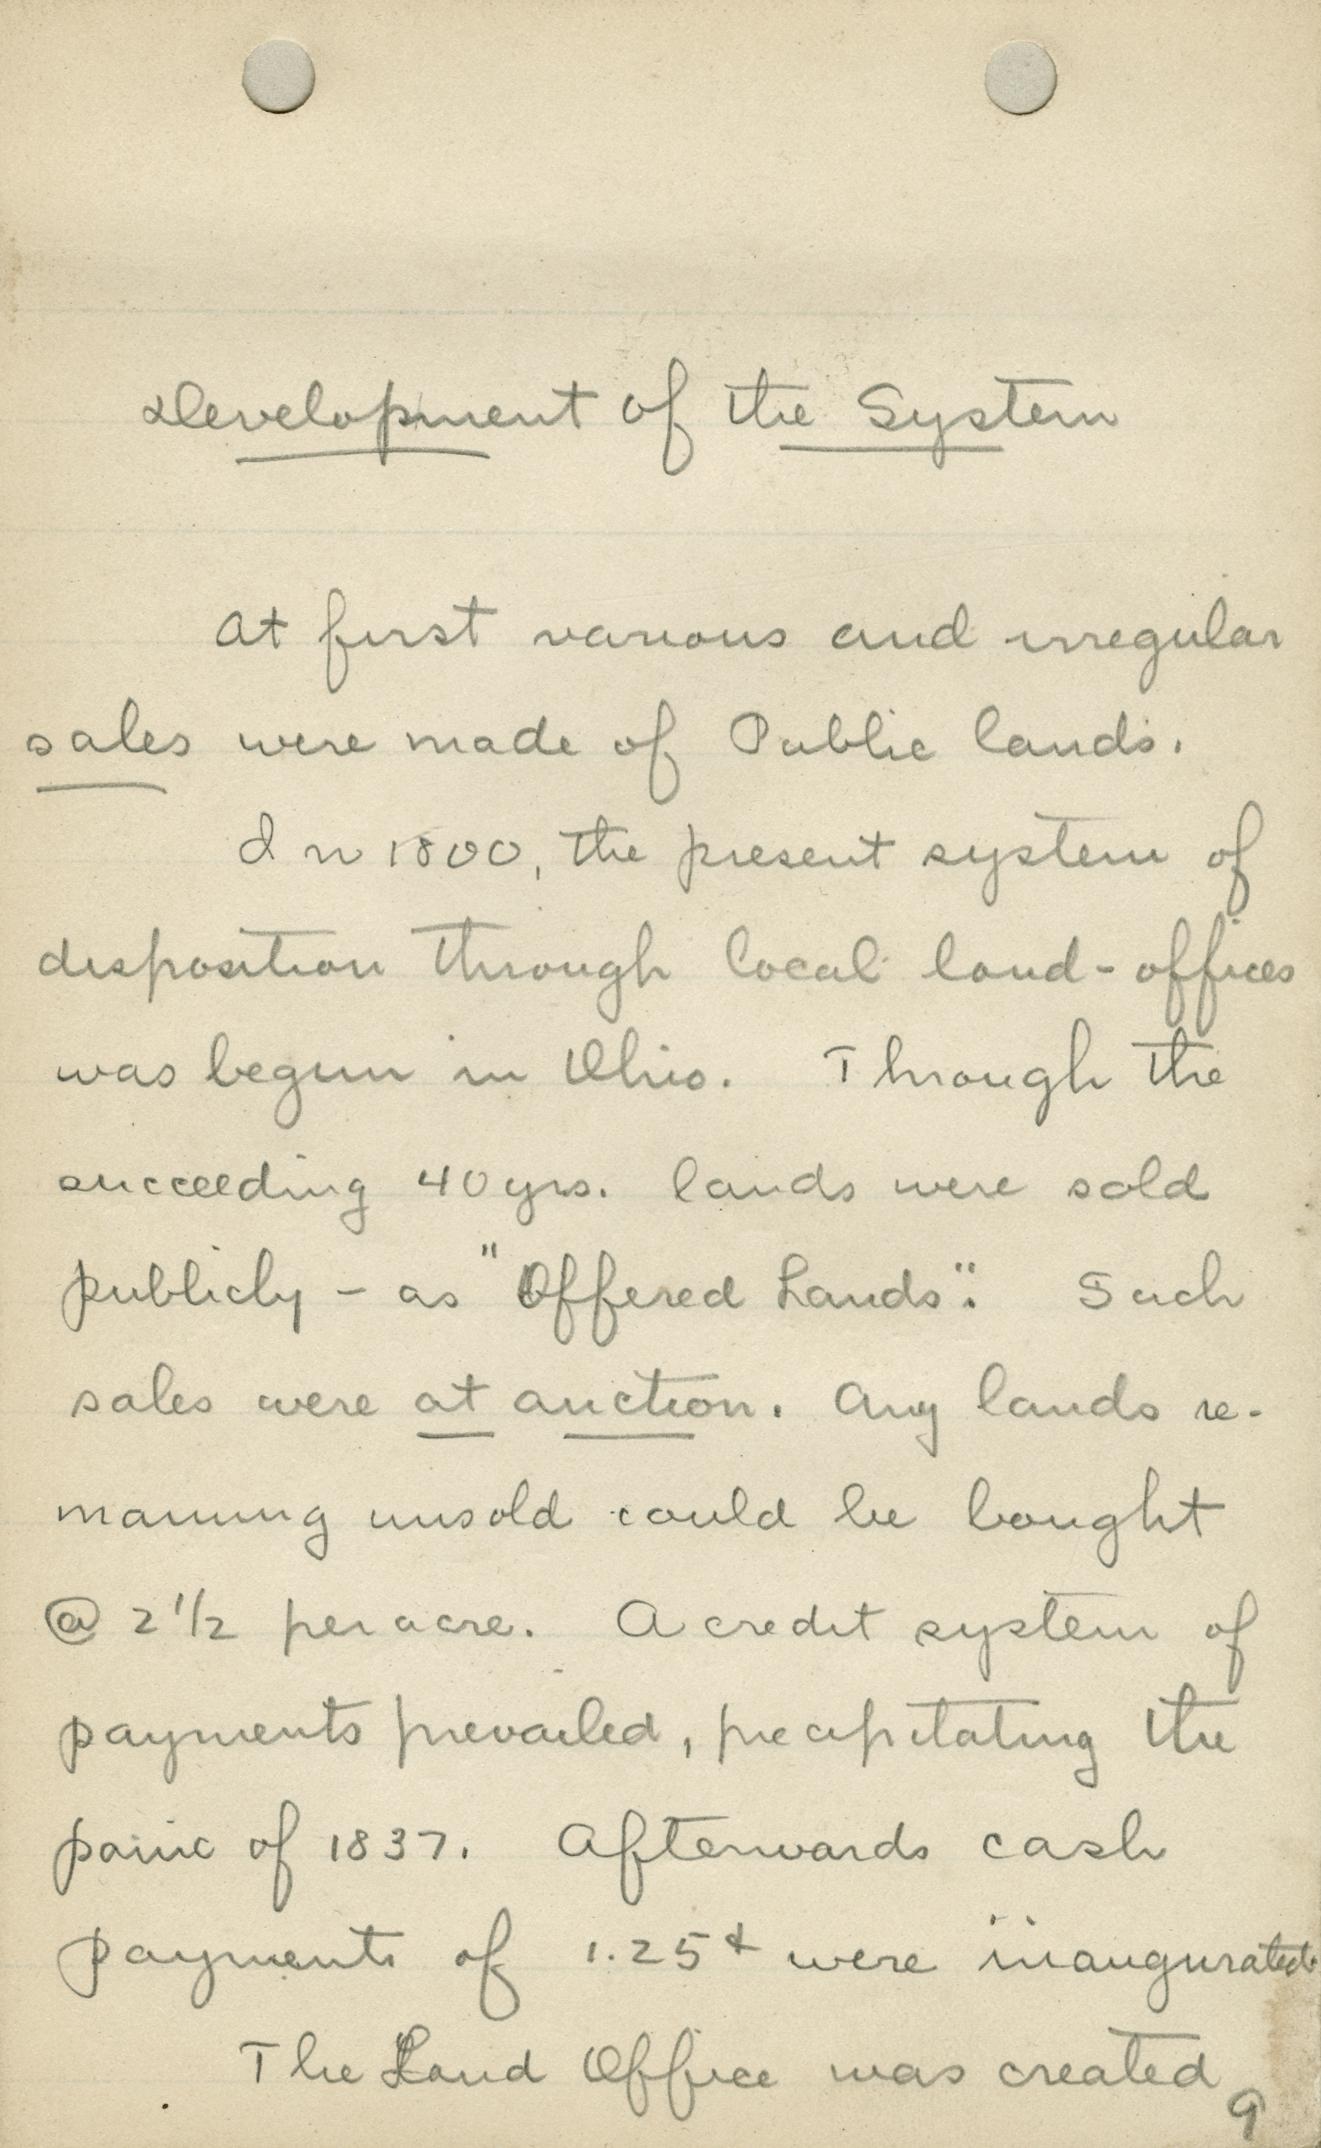 Development of the System
At first various and irregular
sales were made of Public lands.
In 1800, the present system of
disposition through local land-offices
was begun in Ohio. Through the
succeeding 40 yrs. lands were sold
publicly - as "Offered Lands". Such
sales were at auction. Any lands re-
maining unsold could be bought
@ 2 1/2 per acre. A credit system of
payments prevailed, precipitating the
panic of 1837. Afterwards cash
payments of 1.25 + were inaugurated.
The Land Office was created
9